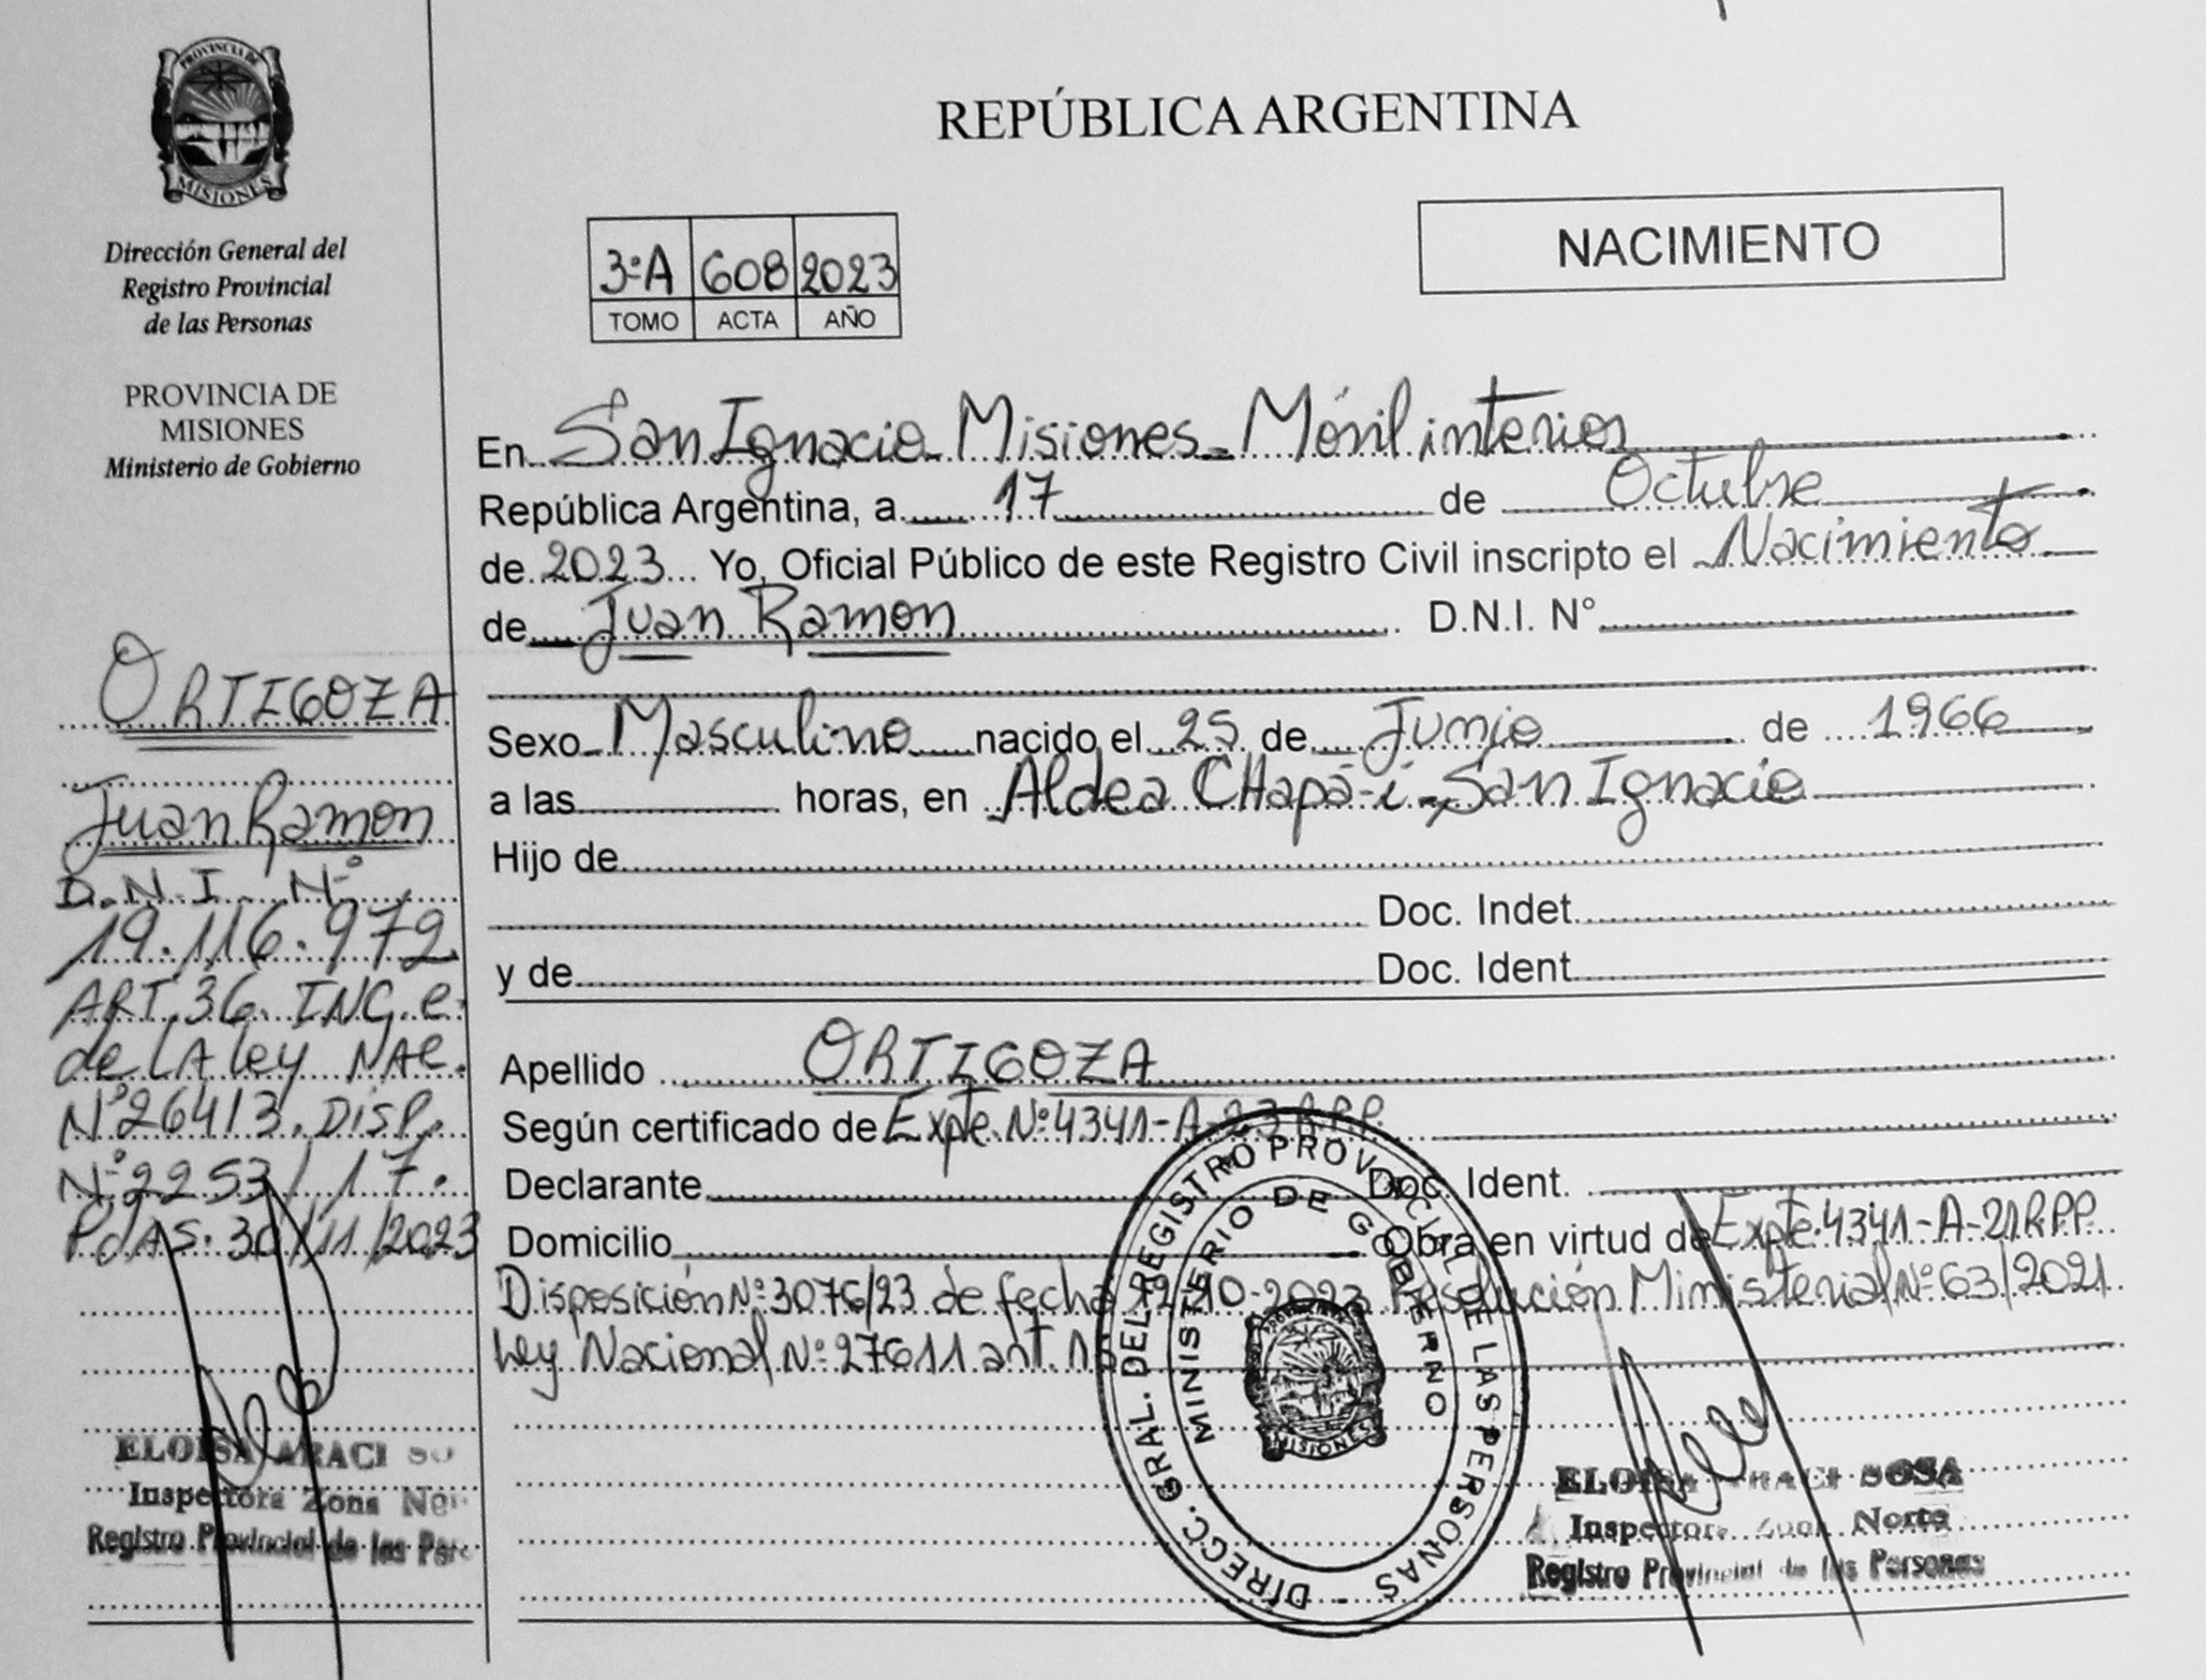 PROVINCIA DE
MISIONES
Dirección General del
Registro Provincial
de las Personas
PROVINCIA DE
MISIONES
Ministerio de Gobierno
ORTIGOZA
Juan Ramon
D.N.I. Nº
19.116.972
ART.36. INC.e.
de LA ley NAC.
Nº26413. DISP.
Nº2253/17.
PdAS. 30/11/2023
ELOISA ARACI SO
Inspectora Zona
Registro Provincial de las
REPÚBLICA ARGENTINA
NACIMIENTO
3ºA 608 2023
TOMO ACTA AÑO
En San Ignacio Misiones - Móvil interior
República Argentina, a 17 de Octubre
de 2023 Yo, Oficial Público de este Registro Civil inscripto el Nacimiento
de Juan Ramon D.N.I. N°
Sexo Masculino nacido el 25 de Junio de 1966
a las horas, en Aldea CHapá-i - San Ignacio
Hijo de
Doc. Indet.
y de Doc. Ident
Apellido ORTIGOZA
Según certificado de Expte. Nº4341-A-23 R.P.P.
Declarante Doc. Ident.
Domicilio Obra en virtud de Expte. 4341-A-21 R.P.P.
Disposición Nº3076/23 de fecha 12-10-2023 Resolución Ministerial Nº63/2021
Ley Nacional Nº27611 art.
DIREC. GRAL. DEL REGISTRO PROVINCIAL DE LAS PERSONAS
MINISTERIO DE GOBIERNO
MISIONES
ELOISA ARACI SOSA
Inspectora Zona Norte
Registro Provincial de las Personas